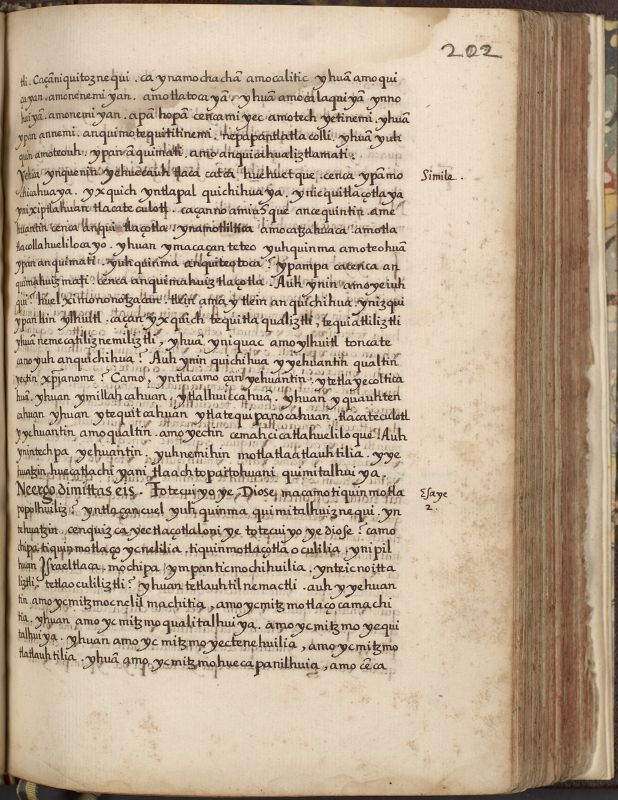 202
tli. Caçãniquitoznequi. ca ynamochachã amocalitic yhuã amoqui
çayan. amonenemiyan. amotlatocayã. yhuã amocalaquiyã ynno
huiyã. amonemiyan. apãhopã cencamiyec amotech yetinemi. yhuã
ypan annemi. anquimotequititinemi. nepapantlatlacolli. yhuã yuh
quin amoteouh. ypan ãquimati. amo anquicahualiztlamati.
Yehuã ynquenin yehuecauh tlaca catca. huehuetque. cenca ypãmo
chicahuaya. yxquich yntlapal quichihuaya. ynicquitlaçotlaya
Simile.
ynixiptlahuan tlacateculotl. caçanno amiuhque ancequintin. ame
huantin cenca anquitlaçotla. ynamotlitlica amocatzahuaca. amotla
tlacollahuelilocayo. yhuan ymacaçan teteo yuhquinma amoteohuã
ypan anquimati. yuhquinma anquiteotoca? ypampa cacenca an
quimahuizmati. cenca anquimahuiztlaçotla. Auh ynin amo yeiuh
qui? huel xintononotzacan. tlein amaya ytlein anquichihua. ynizqui
ypan ltin ylhuitl. caçan yxquich tequitlaqualiztli, tequiatliliztli
yhuã nemecatiliznemiliztli, yhuã yniquac amoylhuitl toncate
cano yuh anquichihua? Auh ynin quichihua yyehuantin qualtin
yectin xp̃ianome? Camo, yntlacamo çan yehuantin. ytetlayecoltica
huã. yhuan ymillahcahuan, ytlalhuiccahua. yhuan yquauhten
cahuan yhuan ytequitcahuan ytlatequipanocahuan. tlacateculotl
yyehuantin amo qualtin. amo yectin cemahcicatlahueliloque? Auh
ynintechpa yehuantin. yuhnemihin motlatlatlauhtilia. yye
huatzin huecatlachiyani tlaachtopaitohuani quimitalhuiya.
Ne ergo dimittas eis. Totecuiyoye, Diose, macamo tiquinmotla
Esaye
2.
popolhuiliz? yntlaçancuel yuhquinma quimitalhuiznequi. yn
tehuatzin cenquizcayectlaçotlaloniye totecuiyoye diose? camo
chipa tiquinmotlaçoycnelilia. tiquinmotlaçotlaoculilia. ynipil
huan Ysraeltlaca. mochipa ympanticmochihuilia. ynteicnoitta
liztli, tetlaoculiliztli? yhuan tetlauhtilnemactli. auh yyehuan
tin amo ycmitzmocnelilmachitia, amo ycmitzmotlaçocamachi
tia. yhuan amo ycmitzmoqualitalhuiya. amo ycmitzmoyequi
talhuiya. yhuan amo ycmitzmoyectenehuilia, amo ycmitzmo
tlatlauhtilia. yhuã amo ycmitzmohuecapanilhuia, amo cẽca